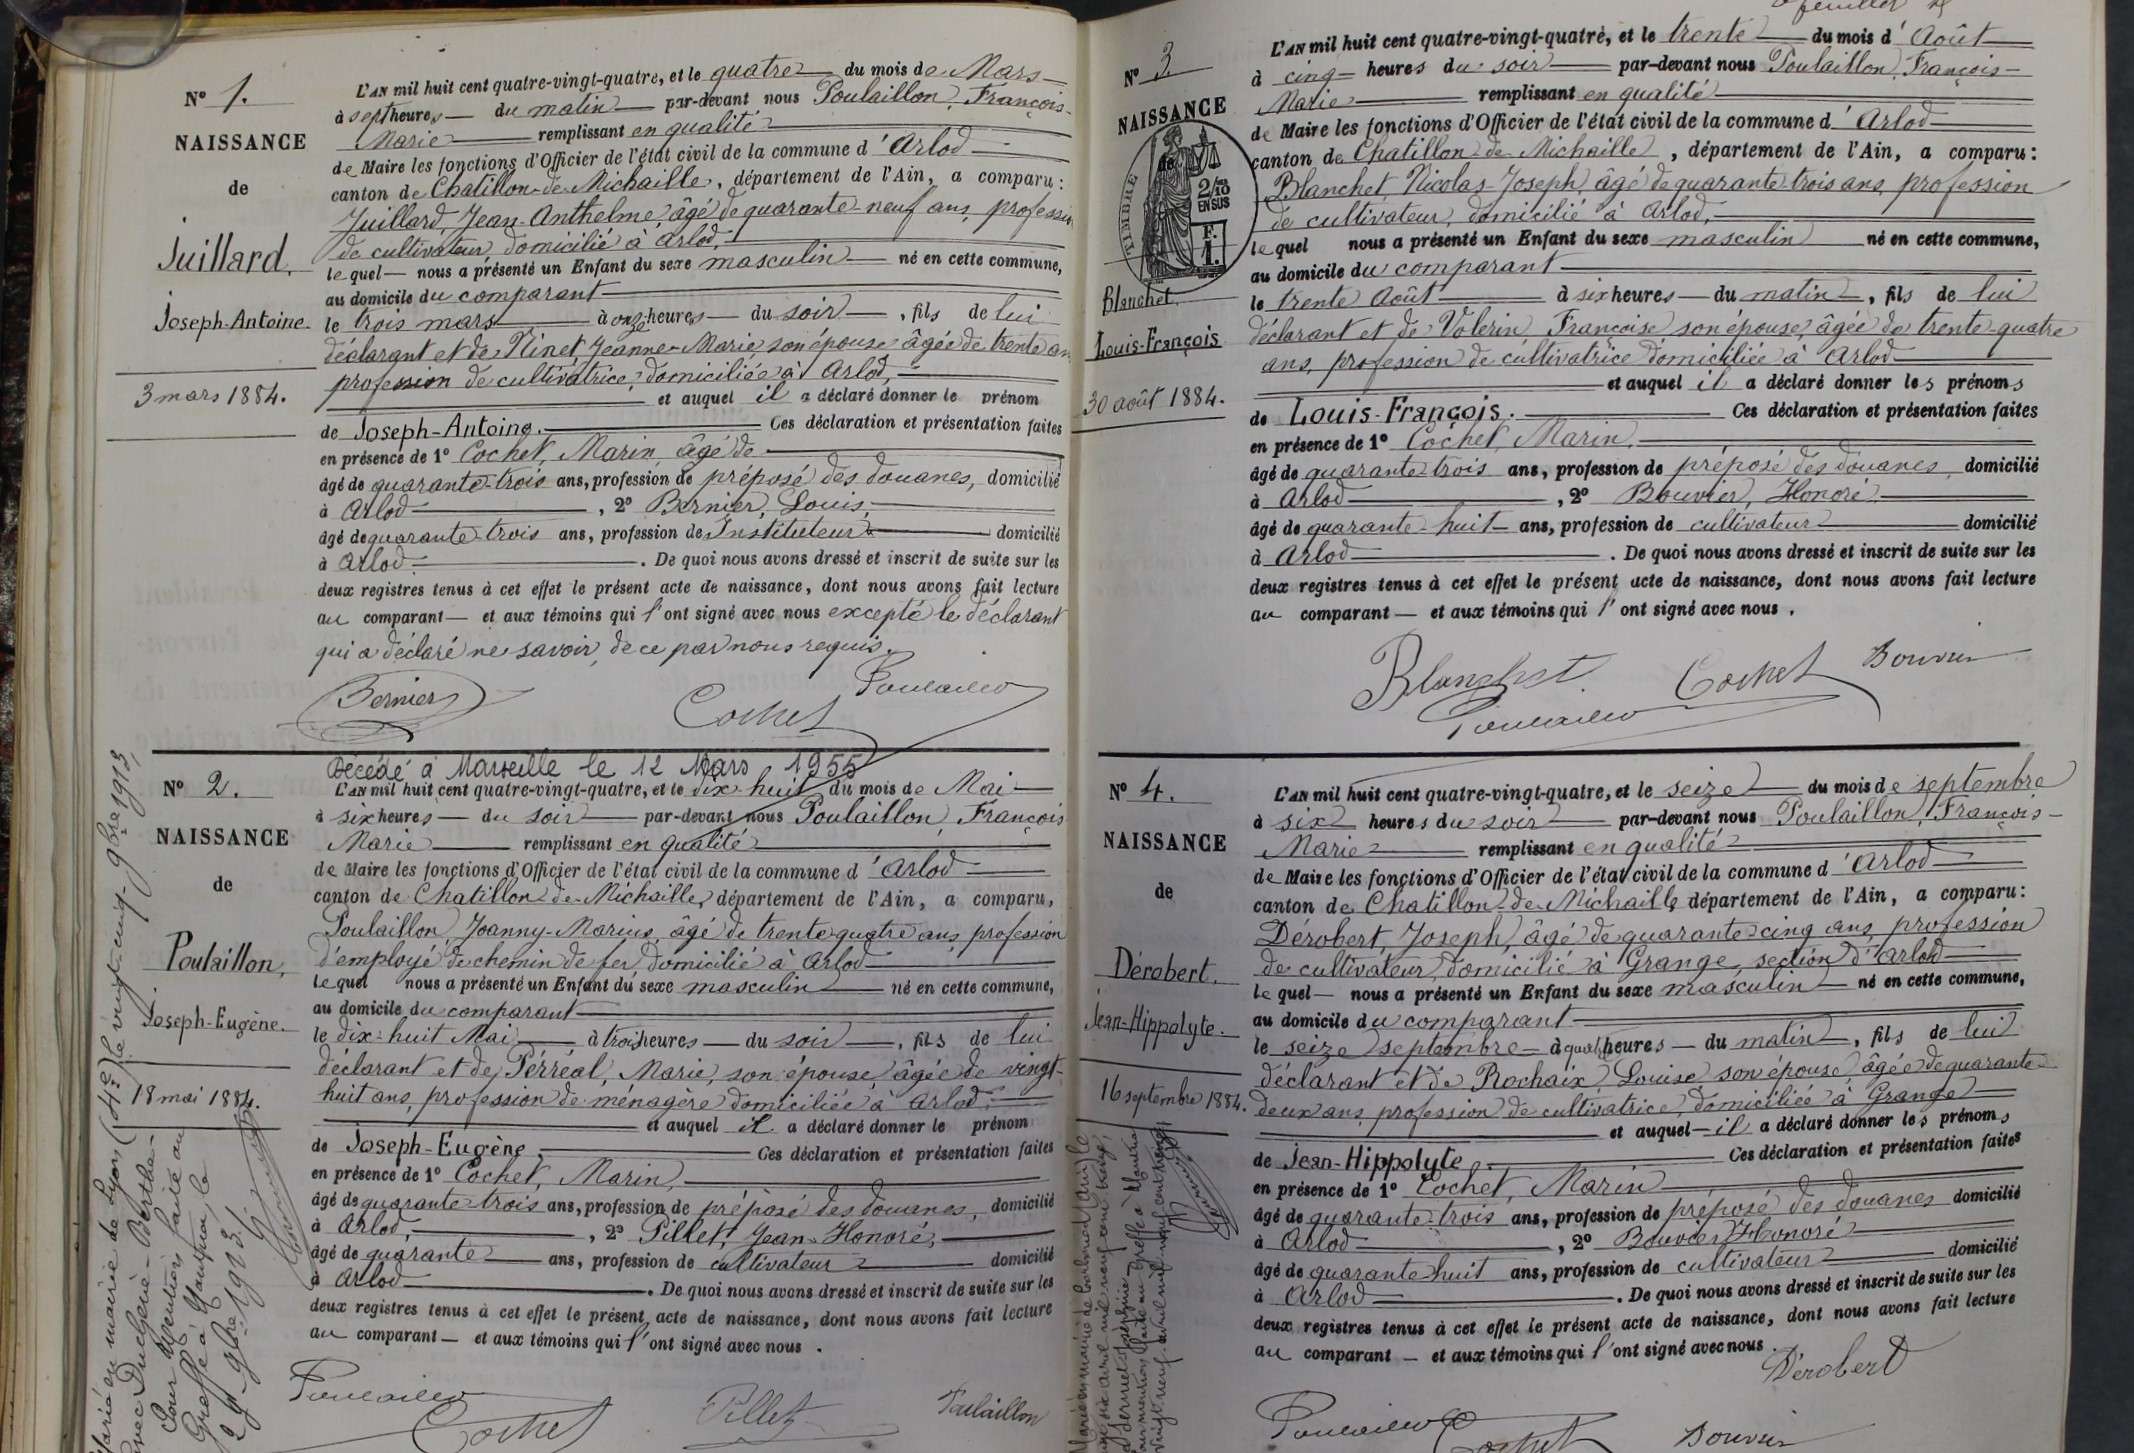 N° 1.
NAISSANCE
de
Juillard,
Joseph-Antoine.
3 mars 1884.
L'AN mil huit cent quatre-vingt-quatre, et le quatre du mois de Mars
à sept heures du matin par-devant nous Poulaillon, François-
Marie remplissant en qualité
de Maire les fonctions d'Officier de l'état civil de la commune d'Arlod
canton de Chatillon-de-Michaille, département de l'Ain, a comparu :
Juillard, Jean-Anthelme âgé de quarante-neuf ans, profession
de cultivateur, domicilié à Arlod,
lequel nous a présenté un Enfant du sexe masculin né en cette commune,
au domicile du comparant
le trois mars à onze heures du soir, fils de lui
déclarant et de Ninet, Jeanne-Marie son épouse âgée de trente ans
profession de cultivatrice, domiciliée à Arlod,
et auquel il a déclaré donner le prénom
de Joseph-Antoine. Ces déclaration et présentation faites
en présence de 1° Cochet, Marin âgé de
âgé de quarante-trois ans, profession de préposé des douanes, domicilié
à Arlod, 2° Bernier, Louis,
âgé de quarante-trois ans, profession de Instituteur domicilié
à Arlod. De quoi nous avons dressé et inscrit de suite sur les
deux registres tenus à cet effet le présent acte de naissance, dont nous avons fait lecture
au comparant et aux témoins qui l'ont signé avec nous excepté le déclarant
qui a déclaré ne savoir, de ce par nous requis.
Bernier Cochet Poulaillon
Décédé à Marseille le 12 Mars 1955
N° 2.
NAISSANCE
de
Poulaillon,
Joseph-Eugène.
18 mai 1884.
L'AN mil huit cent quatre-vingt-quatre, et le dix-huit du mois de Mai
à six heures du soir par-devant nous Poulaillon, François
Marie remplissant en qualité
de Maire les fonctions d'Officier de l'état civil de la commune d'Arlod
canton de Chatillon-de-Michaille, département de l'Ain, a comparu,
Poulaillon Joanny-Marius, âgé de trente-quatre ans, profession
d'employé de chemin de fer, domicilié à Arlod
lequel nous a présenté un Enfant du sexe masculin né en cette commune,
au domicile du comparant
le dix-huit Mai à trois heures du soir, fils de lui
déclarant et de Perréal, Marie, son épouse âgée de vingt-
huit ans, profession de ménagère domiciliée à Arlod.
et auquel il a déclaré donner le prénom
de Joseph-Eugène. Ces déclaration et présentation faites
en présence de 1° Cochet, Marin,
âgé de quarante-trois ans, profession de préposé des douanes, domicilié
à Arlod, 2° Pillet, Jean-Honoré,
âgé de quarante ans, profession de cultivateur domicilié
à Arlod. De quoi nous avons dressé et inscrit de suite sur les
deux registres tenus à cet effet le présent acte de naissance, dont nous avons fait lecture
au comparant et aux témoins qui l'ont signé avec nous.
Poulaillon Cochet Pillet Poulaillon
Marié en mairie de Lyon (4e) le vingt-cinq 9bre 1913,
avec Berthe-
Pour mention faite au
Greffe à Nantua, le
29 9bre 1913.
N° 3.
NAISSANCE
de
TIMBRE
2/10
EN SUS
F.
1.
Blanchet,
Louis-François
30 août 1884.
feuillet
L'AN mil huit cent quatre-vingt-quatre, et le trente du mois d'Août
à cinq heures du soir par-devant nous Poulaillon, François-
Marie remplissant en qualité
de Maire les fonctions d'Officier de l'état civil de la commune d'Arlod
canton de Chatillon-de-Michaille, département de l'Ain, a comparu :
Blanchet, Nicolas-Joseph, âgé de quarante-trois ans, profession
de cultivateur, domicilié à Arlod,
lequel nous a présenté un Enfant du sexe masculin né en cette commune,
au domicile du comparant
le trente Août à six heures du matin, fils de lui
déclarant et de Volerin, Françoise son épouse, âgée de trente-quatre
ans, profession de cultivatrice domiciliée à Arlod
et auquel il a déclaré donner les prénoms
de Louis-François. Ces déclaration et présentation faites
en présence de 1° Cochet, Marin,
âgé de quarante-trois ans, profession de préposé des douanes, domicilié
à Arlod, 2° Bouvier, Honoré
âgé de quarante-huit ans, profession de cultivateur domicilié
à Arlod. De quoi nous avons dressé et inscrit de suite sur les
deux registres tenus à cet effet le présent acte de naissance, dont nous avons fait lecture
au comparant et aux témoins qui l'ont signé avec nous.
Blanchet Cochet Bouvier
Poulaillon
N° 4.
NAISSANCE
de
Dérobert.
Jean-Hippolyte.
16 septembre 1884.
L'AN mil huit cent quatre-vingt-quatre, et le seize du mois de septembre
à six heures du soir par-devant nous Poulaillon, François-
Marie remplissant en qualité
de Maire les fonctions d'Officier de l'état civil de la commune d'Arlod
canton de Chatillon-de-Michaille, département de l'Ain, a comparu :
Dérobert, Joseph, âgé de quarante-cinq ans, profession
de cultivateur, domicilié à Grange, section d'Arlod
lequel nous a présenté un Enfant du sexe masculin né en cette commune,
au domicile du comparant
le seize septembre à quatre heures du matin, fils de lui
déclarant et de Rochaix, Louise son épouse, âgée de quarante-
deux ans, profession de cultivatrice, domiciliée à Grange
et auquel il a déclaré donner les prénoms
de Jean-Hippolyte. Ces déclaration et présentation faites
en présence de 1° Cochet, Marin
âgé de quarante-trois ans, profession de préposé des douanes domicilié
à Arlod, 2° Bouvier Honoré
âgé de quarante-huit ans, profession de cultivateur domicilié
à Arlod. De quoi nous avons dressé et inscrit de suite sur les
deux registres tenus à cet effet le présent acte de naissance, dont nous avons fait lecture
au comparant et aux témoins qui l'ont signé avec nous.
Dérobert
Poulaillon Cochet Bouvier
Marié en mairie de